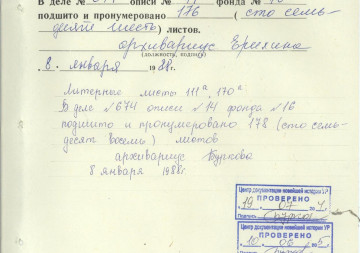 В деле № 674 описи № 14 фонда № 16
подшито и пронумеровано 176 (сто семь-
десят шесть) листов.
архивариус
(должность, подпись)
8 января 1988г.
Литерные листы 111а, 170а
В деле №674 описи №14 фонда №16
подшито и пронумеровано 178 (сто семь-
десят восемь) листов
архивариус Буркова
8 января 1988г.
Центр документации новейшей истории УР
ПРОВЕРЕНО
19 07
Подпись
Центр документации новейшей истории УР
ПРОВЕРЕНО